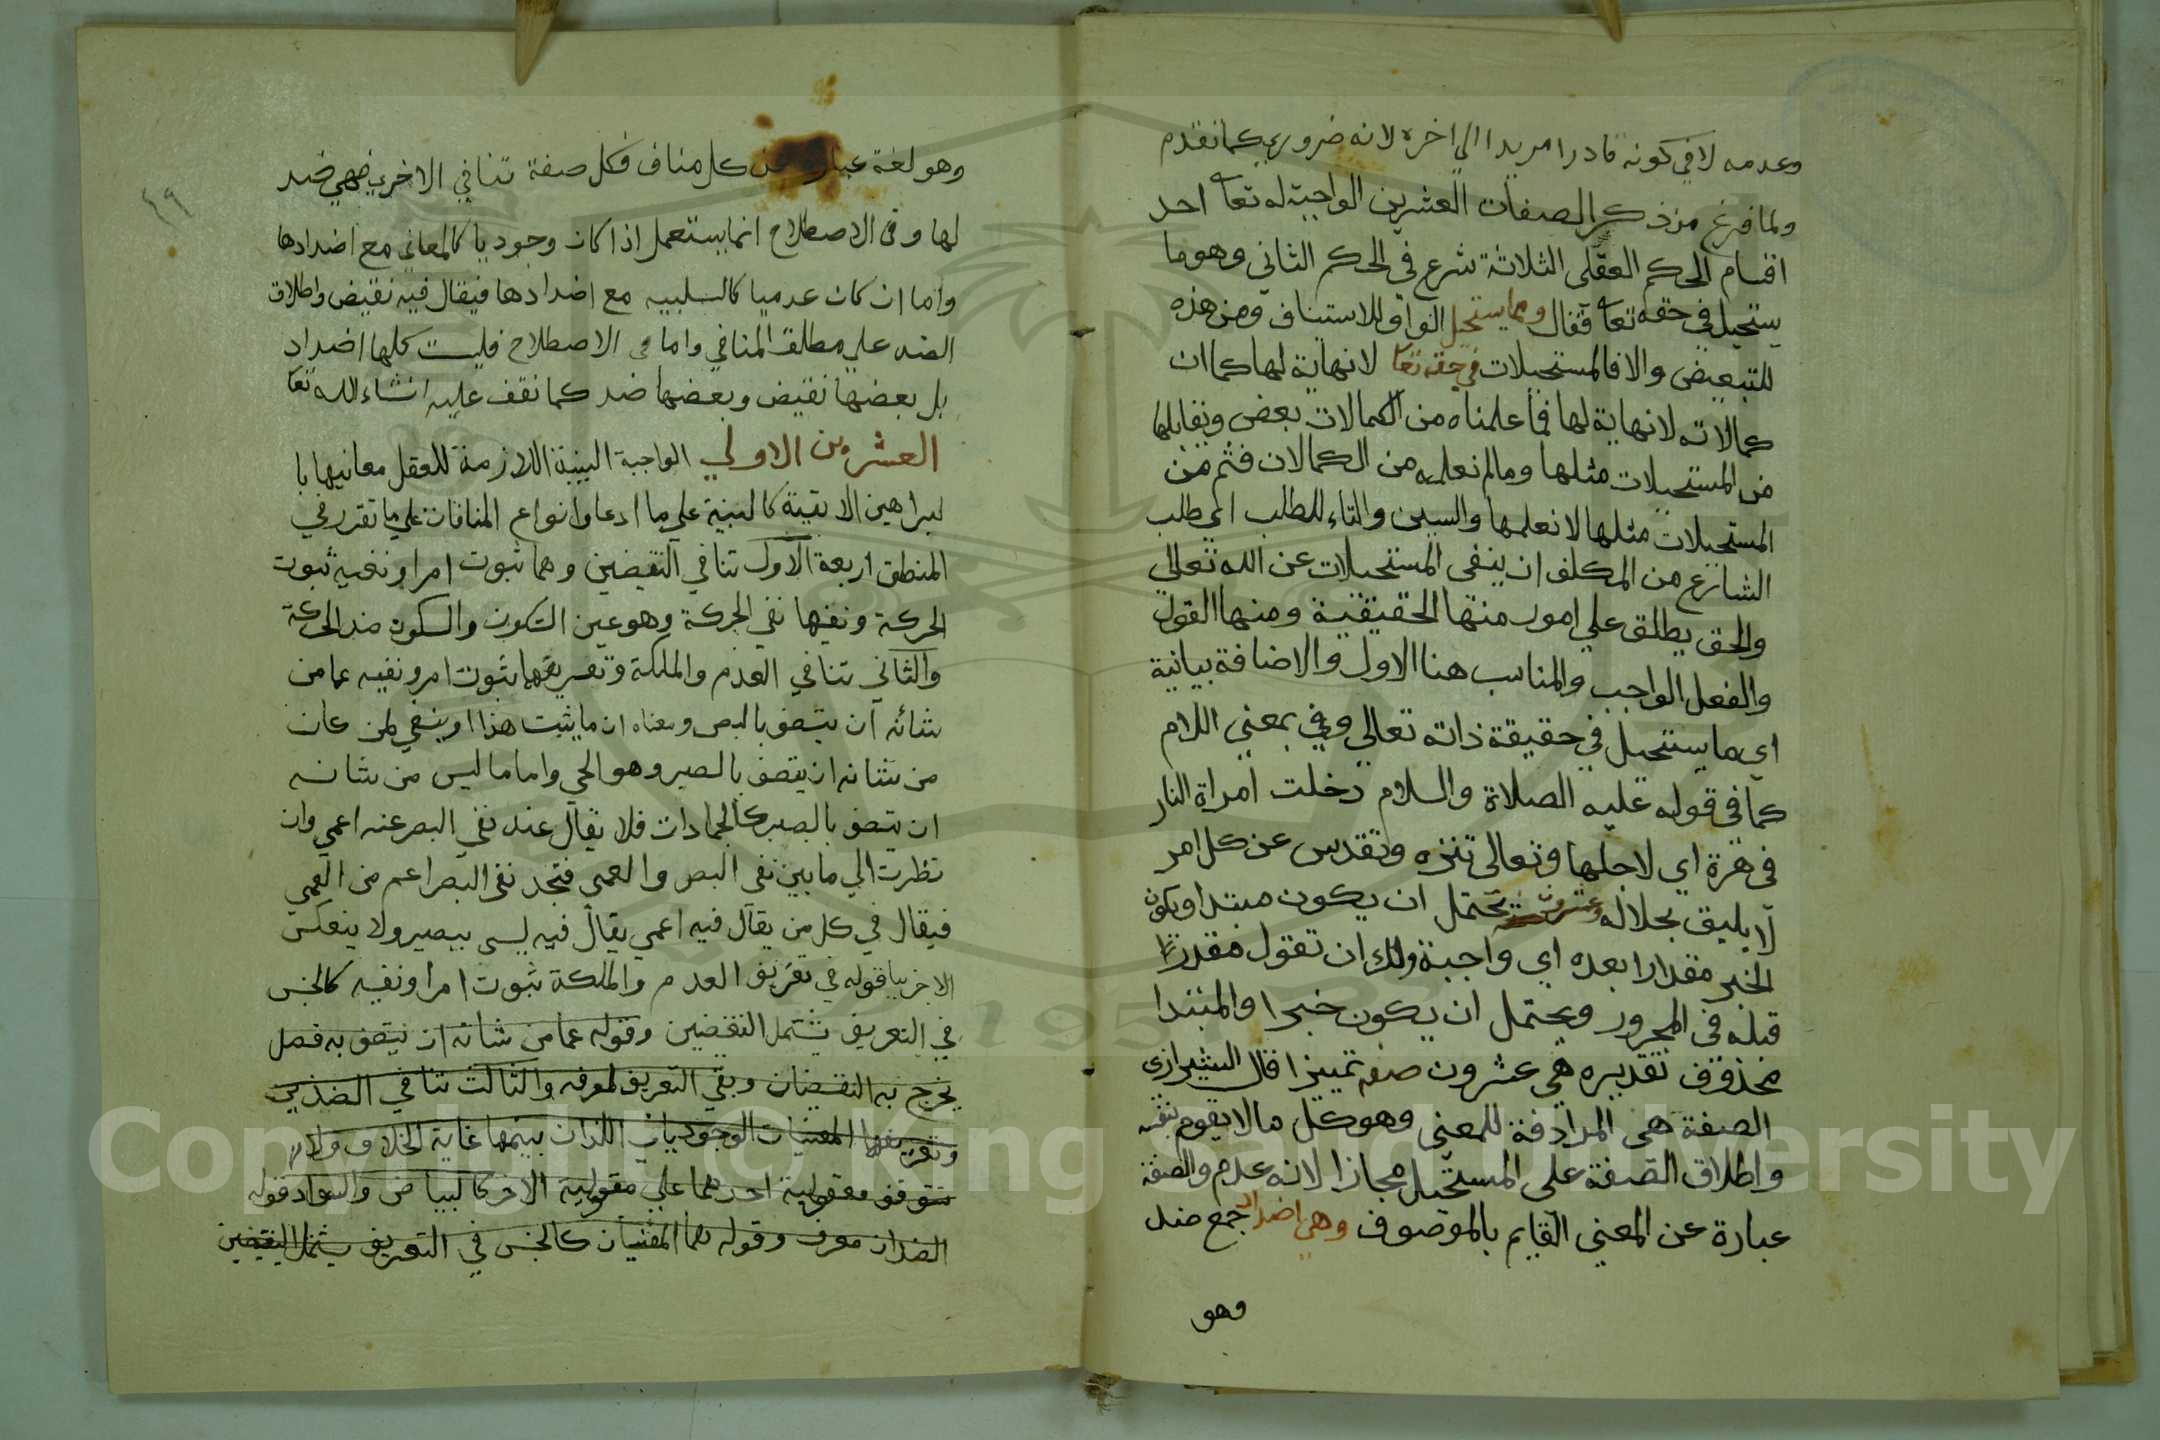 وعدمه لا في كونه قادرا مريدا الي اخره لانه ضروري كما تقدم
ولما فرغ من ذكر الصفات العشرين الواجبة له تعا احد
اقسام الحكم العقلي الثلاثة شرع في الحكم الثاني وهو ما
يستحيل في حقه تعا فقال ومما يستحيل الواو للاستيناف ومن هذه
للتبعيض والا فالمستحيلات في حقه تعا لا نهاية لها كما ان
كمالاته لا نهاية لها فما علمناه من الكمالات بعض ويقابلها
من المستحيلات مثلها وما لم نعلمه من الكمالات فثم من
المستحيلات مثلها لا نعلمها والسين والتاء للطلب اي طلب
الشارع من المكلف ان ينفي المستحيلات عن الله تعالي
والحق يطلق علي امور منها الحقيقية ومنها القول
والفعل الواجب والمناسب هنا الاول والاضافة بيانية
اي ما يستحيل في حقيقة ذاته تعالي وفي بمعني اللام
كما في قوله عليه الصلاة والسلام دخلت امراة النار
في هرة اي لاجلها وتعالى تنزه وتقدس عن كل امر
لا يليق بجلاله عشرون يحتمل ان يكون مبتدا ويكون
الخبر مقدارا بعده اي واجبة ولك ان تقول مقدرا
قبله في المجرور ويحتمل ان يكون خبرا والمبتدا
محذوف تقديره هي عشرون صفة تمييزا قال الشيرازي
الصفة هي المرادفة للمعني وهو كل ما لا يقوم بنفسه
واطلاق الصفة على المستحيل مجازا لانه عدم والصفة
عبارة عن المعني القايم بالموصوف وهي اضداد جمع ضد
وهو
٤٩
وهو لغة عبارة عن كل مناف فكل صفة تنافي الاخري فهي ضد
لها وفي الاصطلاح انما يستعمل اذا كان وجوديا كالمعاني مع اضدادها
واما ان كان عدميا كالسلبيه مع اضدادها فيقال فيه نقيض واطلاق
الضد علي مطلق المنافي واما في الاصطلاح فليست كلها اضداد
بل بعضها نقيض وبعضها ضد كما نقف عليه انشاء الله تعا
العشرين الاولي الواجبة البينة اللازمة للعقل معانيها با
لبراهين الاتية كالبينة علي ما ادعا وانواع المنافات علي ما تقرر في
المنطق اربعة الاول تنافي النقيضين وهما ثبوت امر ونفيه ثبوت
الحركة ونفيها نفي الحركة وهو عين السكون والسكون ضد الحركة
والثاني تنافي العدم والملكة وتعريفهما ثبوت امر ونفيه عما من
شانه ان يتصف بالبصر ومعناه ان ما يثبت هذا او ينفي لمن كان
من شانه ان يتصف بالبصر وهو الحي واما ما ليس من شانه
ان يتصف بالبصر كالجمادات فلا يقال عند نفي البصر عنه اعمي وان
نظرت الي ما بين نفي البصر والعمي فتجد نفي البصر اعم من العمي
فيقال في كل من يقال فيه اعمي يقال فيه ليس ببصير ولا ينعكس
قوله في تعريف العدم والملكة ثبوت امر ونفيه كالجنس
في التعريف يشتمل النقيضين وقوله عما من شانه ان يتصف به فصل
يخرج به النقيضان وبقي التعريف لمعرفه والثالث تنافي الضدين
وتعريفهما المعنيان الوجوديان اللذان بينهما غاية الخلاف ولا
تتوقف معقولية احدهما علي معقولية الاخر كالبياض والسواد قوله
الضدان معرف وقوله هما المعنيان كالجنس في التعريف يشمل النقيضين
Copyright © King Saud University
1957